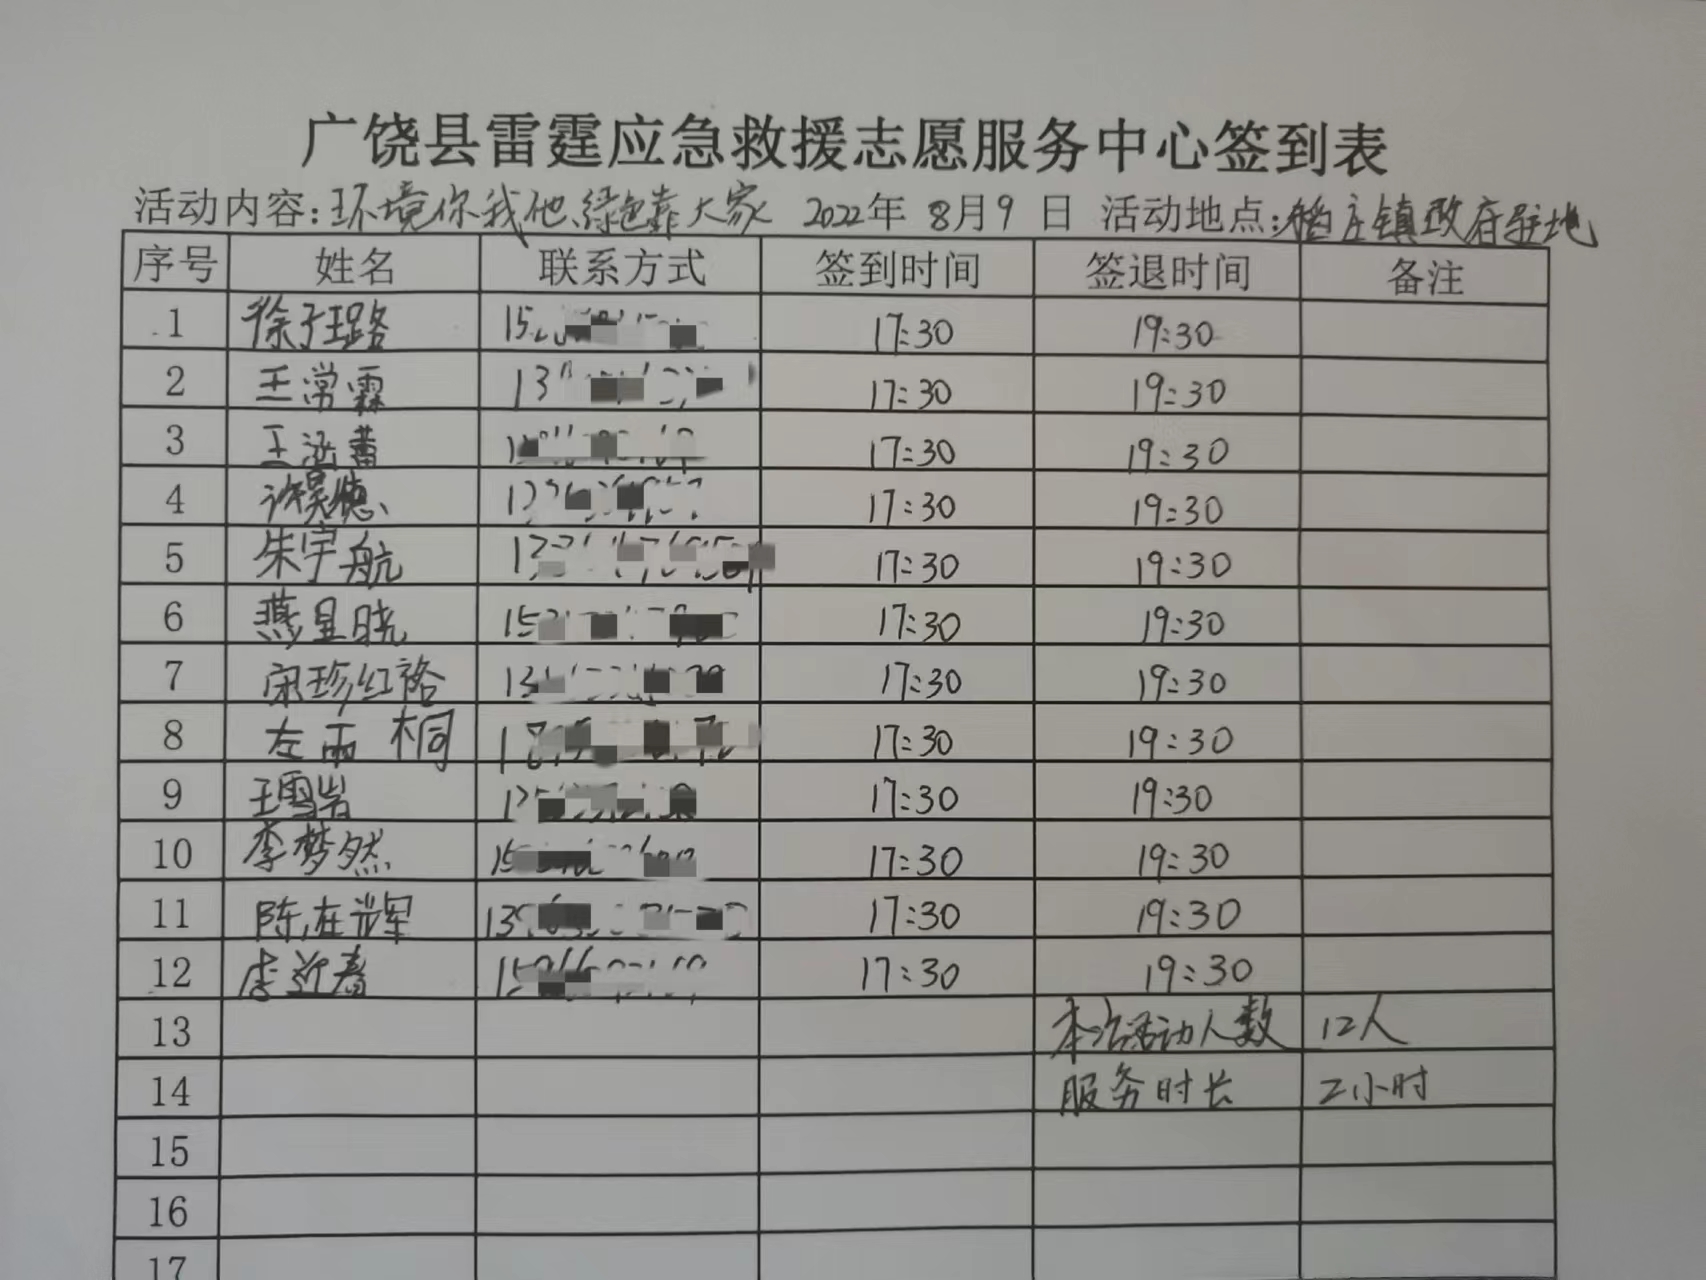 广饶县雷霆应急救援志愿服务中心签到表
活动内容：环境你我他,绿色靠大家 2022年 8月9日 活动地点：稻庄镇政府驻地
序号 姓名 联系方式 签到时间 签退时间 备注
1 徐子珺路 17:30 19:30
2 王常霖 17:30 19:30
3 王涵蕾 17:30 19:30
4 许昊德 17:30 19:30
5 朱宇航 17:30 19:30
6 燕星晓 17:30 19:30
7 宋珍红裕 17:30 19:30
8 左雨桐 17:30 19:30
9 王雪岩 17:30 19:30
10 李梦然 17:30 19:30
11 陈在辉 17:30 19:30
12 李迎春 17:30 19:30
13 本次活动人数 12人
14 服务时长 2小时
15
16
17